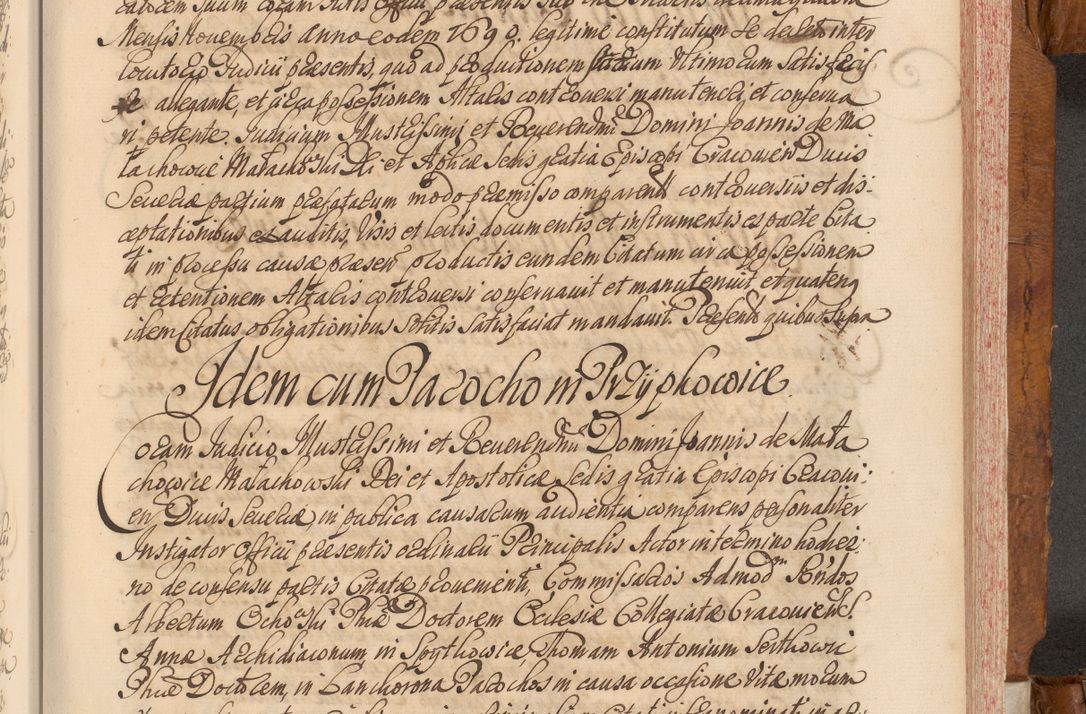 Mensis Novembris Anno eodem 1690. legitime constitutum se de et inter
locutorio Judicii praesentis, quo ad productionem Vltimorum satis fecis
se allegante, et circa possessionem Altaris controversi manuteneri, et conserva
ri petente. Judicium Illustrissimi et Reverendmi Domini Joannis de Ma
lachowice Malachowski Dei et Aplicae Sedis gratia Episcopi Cracovien Ducis
Severiae partium praefatarum modo praemisso comparen controversiis et dis:
ceptationibus exauditis, Visis et lectis documentis et instrumentis ex parte Cita
ti in processu causae praesen productis eundem Citatum circa possessionem
et retentionem Altaris controversi conservavit et manutenuit et quaten
idem Citatus obligationibus solitis satisfaciat mandavit. Presen quibus supra
Idem cum Parocho in Przyphowice.
Coram Judicio Illustrissimi et Reverendmi Domini Joannis de Mała
chowice Malachowski Dei et Apostolicae Sedis gratia Episcopi Cracovi:
en Ducis Severiae, in publica causarum audientia comparens personaliter
Instigator Officii praesentis ordinarii Principalis Actor in termino hodier
no de consensu partis Citatae provenienti, Commissarios Admod Rndos
Albertum Ochowski Phiae Doctorem Ecclesiae Collegiatae Cracovien S.
Annae Archidiaconum in Spythowice, Thomam Antonium Serthowi
Phiae Doctorem, in Lanchorona Parochos in causa occasione Vitae morum